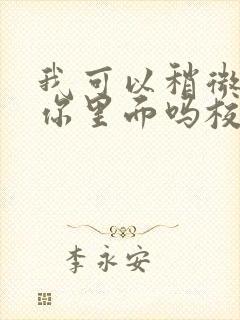 我可以稍微
你里面吗板
李永安